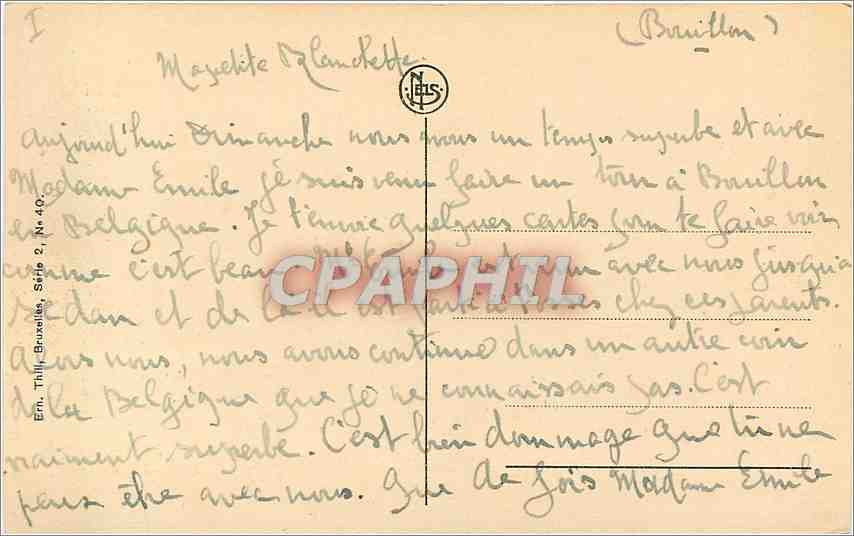 I
(Bouillon)
Ma petite Blanchette.
NELS
aujourd'hui Dimanche nous avons un temps superbe et avec
Madame Emile je suis venu faire un tour à Bouillon
en Belgique. Je t'envoie quelques cartes pour te faire voir
comme c'est beau. est venu avec nous jusqu'a
CPAPHIL
Sedan et de là il est chez ces parents.
alors nous, nous avons continué dans un autre coin
de la Belgique que je ne connaissais pas. C'est
vraiment superbe. C'est bien dommage que tu ne
peux être avec nous. Que de fois Madame Emile
Ern. Thill, Bruxelles, Série 2, No 40.